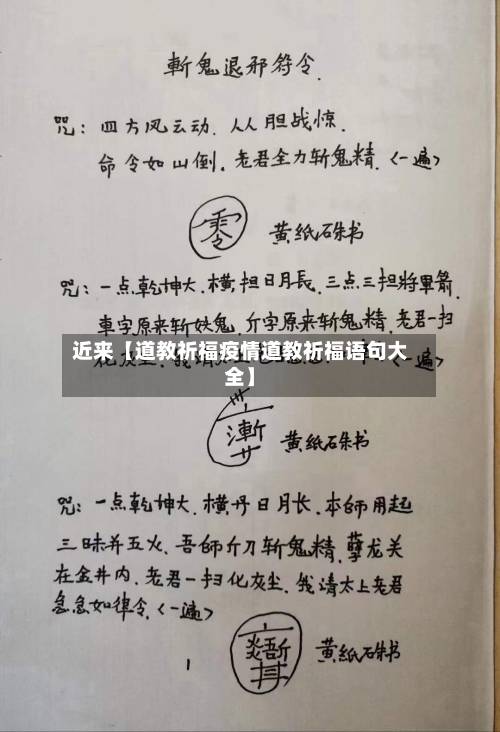 斬鬼退邪符令.
咒：四方风云动.人人胆战惊.
命令如山倒.老君全力斩鬼精.〈一遍〉
零
黄纸硃书
咒：一点乾坤大.横担日月長.三点三担將軍箭.
車字原来斩妖鬼.斤字原来斩鬼精.老君一扫
近来【道教祈福疫情道教祈福语句大
全】
黄纸硃书
咒：一点乾坤大.横丹日月长.本師用起
三昧并五火.吾師斤刀斩鬼精.孽龙关
在金井内.老君一扫化灰尘.我请太上老君
急急如律令.〈一遍〉
黄紙硃书
1